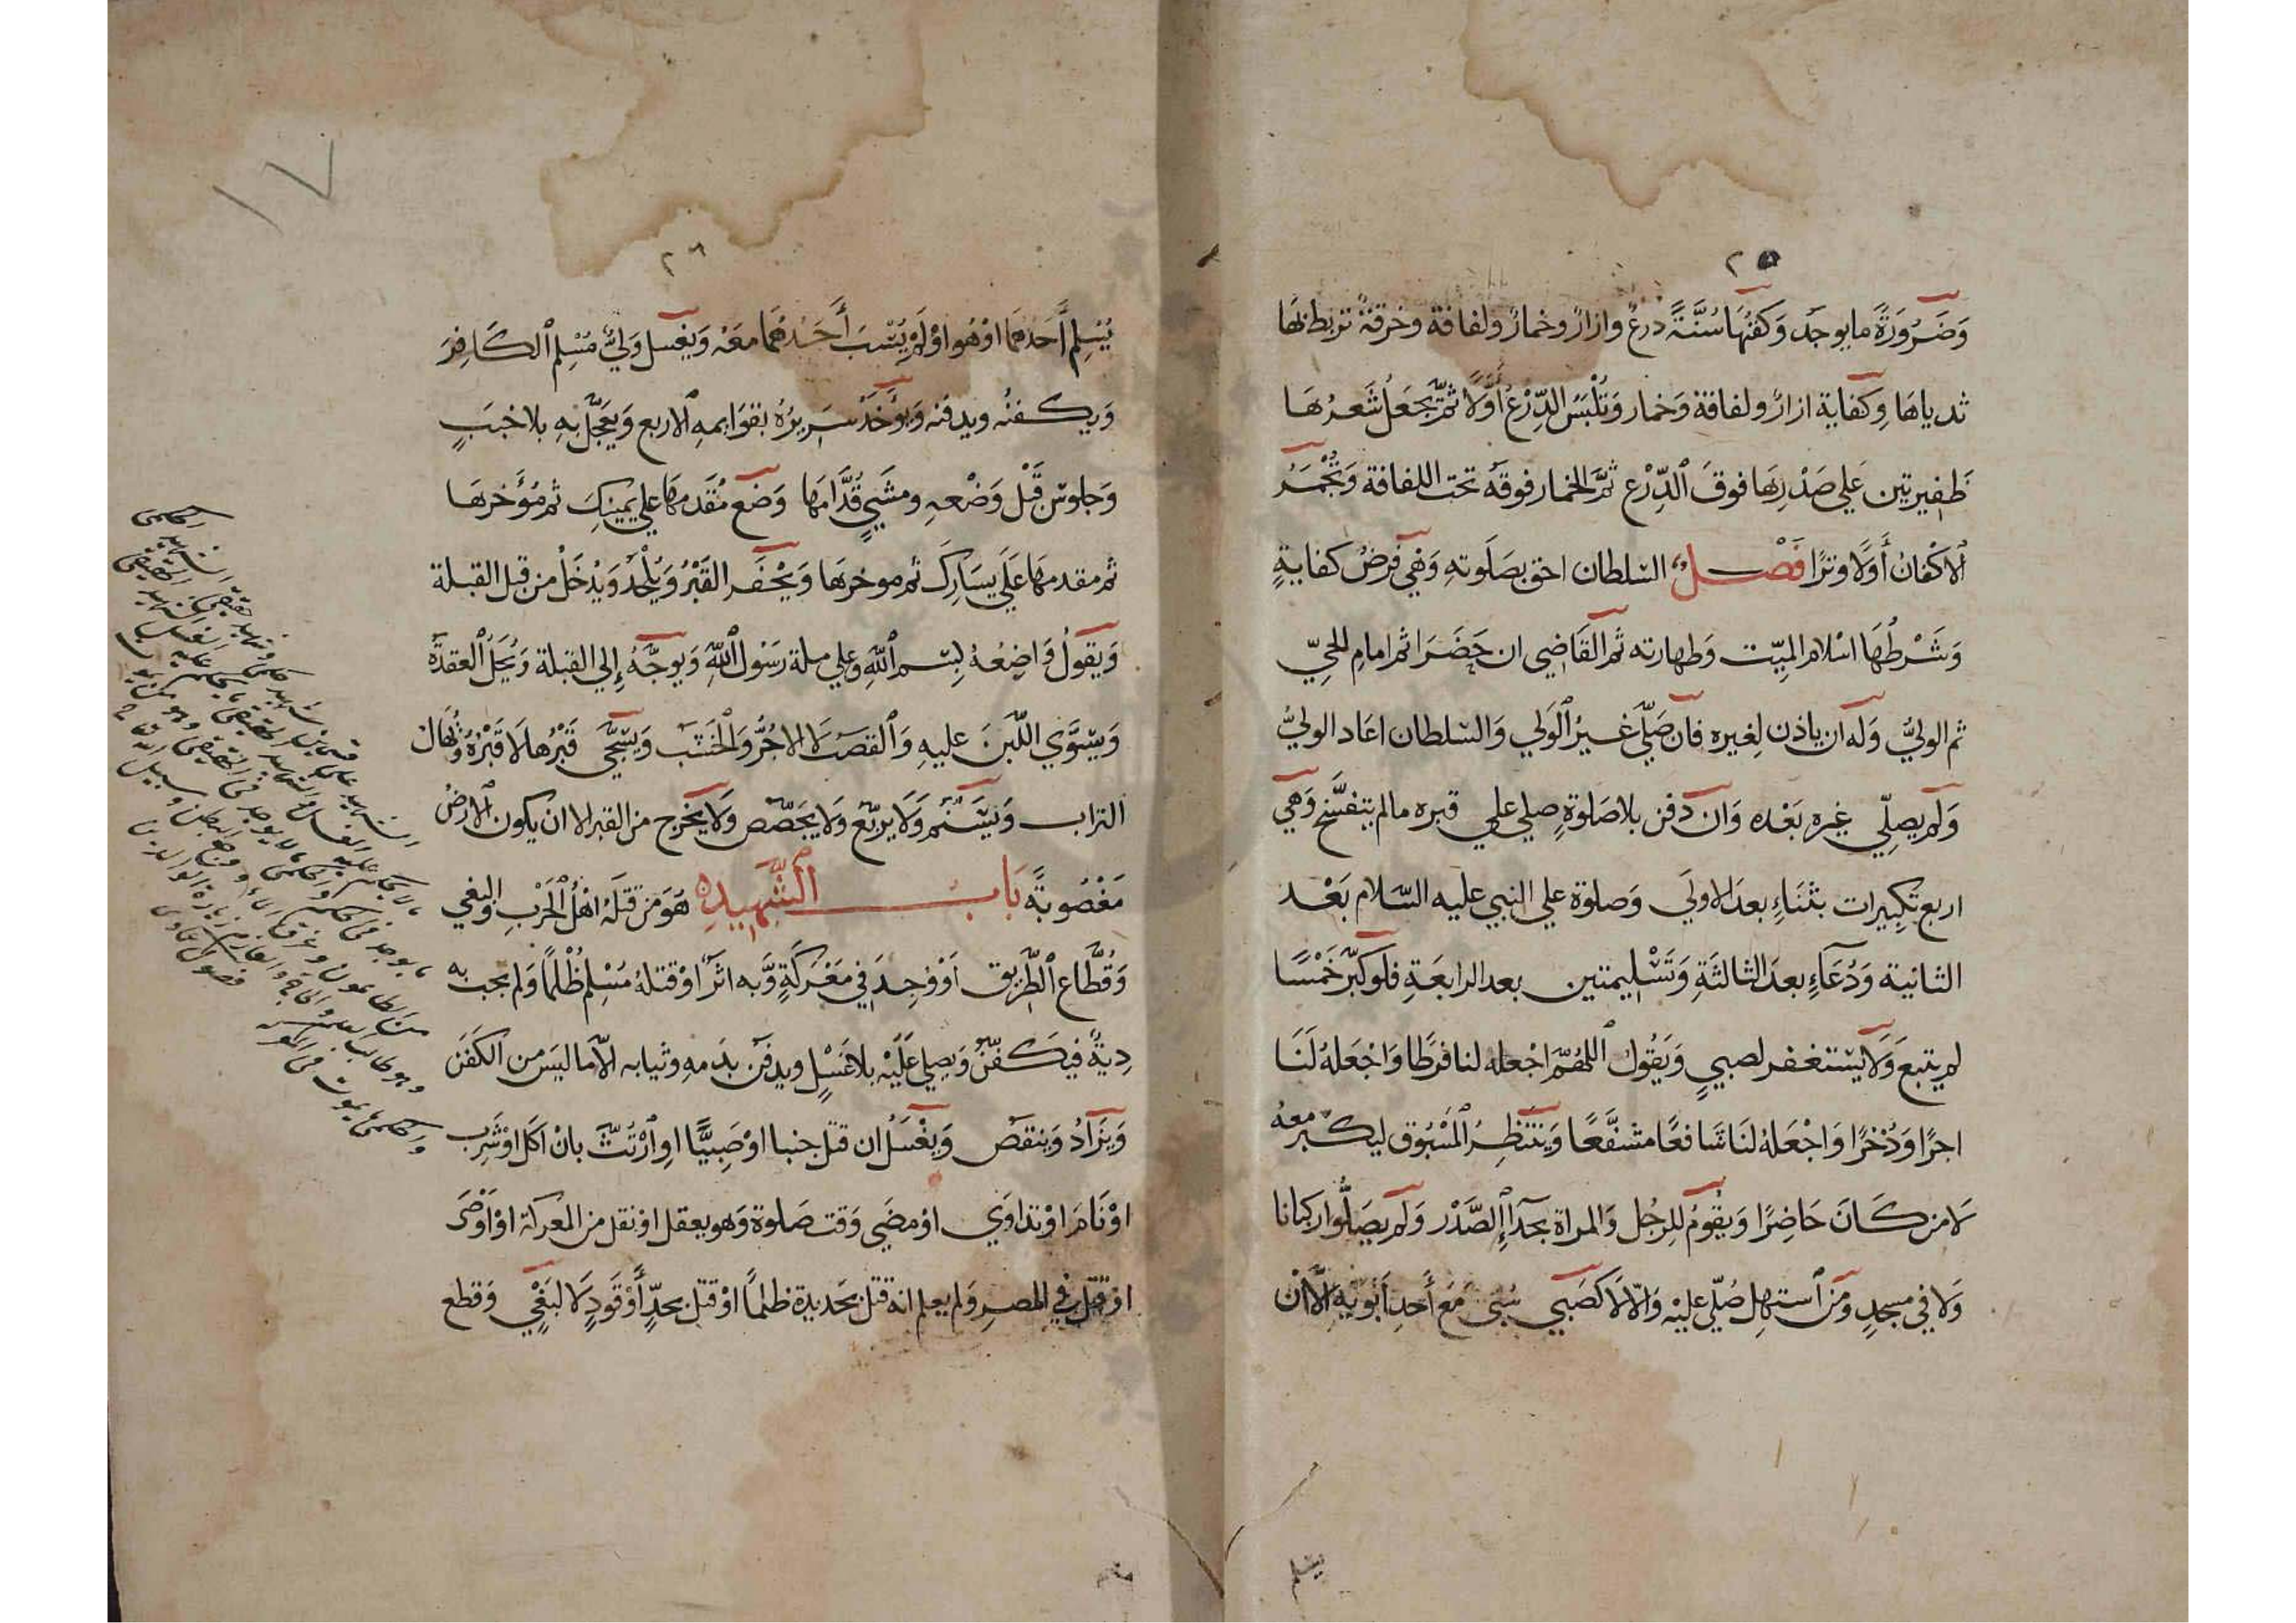 ٢٥
وَضَرُورَةً مايوجد وَكفنُهَا سُنَّةً درعٌ وازارٌ وخمارٌ ولفافة وخرقةٌ تربط بها
ثدياهَا وِكفاية ازارٌ ولفافة وَخمار وَتُلْبَسُ الدِّرْعُ أَوَّلًا ثُمَّ يجعَلُ شَعرُهَا
ظفيرتين عَلي صَدْرِهَا فوقَ ٱلدِّرْع ثمَّ الخمار فوقَه تحت اللفافة وَتُجْمَرُ
ٱلاكْفانُ أَوَّلًا وترًا فَصْـــل السّلطان احق بصَلَوته وَهَي فرضُ كفايةٍ
وَشَرْطُهَا اسْلام الميّت وَطهارته ثم القَاضِي ان حَضَرَ اثم امامِ للحيّ
ثم الوليُّ وَله ان ياذن لِغيره فان صَلّي غيرُ ٱلوَلي وَالسّلطان اعَاد الوليُّ
وَلم يصلِّي غيره بَعْده وَان دَفن بلاصَلوةٍ صلي علي قبره مالم يتفسّخ وَهَي
اربع تكبِيرات بثَنَاءٍ بعدَ الاولَي وَصلوة علي النبي عليه السّلام بَعْد
الثانية وَدُعَاءٍ بعدَ الثالثَةِ وَتَسْلِيمتين بعد الرابعَةِ فلوكبّر خَمْسًا
لم يتبعَ وَلَا يَسْتغفر لصبيٍ وَيَقُوك اللهُمّ اجْعله لنا فرَطًا وَاجْعَلهُ لَنَا
اجرًا وَذُخرًا وَاجْعَلهُ لنَا شَافعًا مشفَّعًا وَيَنْتَظِرُ المَسْبُوق ليكبر معهُ
لَا من كَانَ حَاضِرًا وَيقُومُ لِلرجُل وَالمراة بحذاءِ الصَّدْر وَلم يصَلُّوا ركبانا
وَلا في مسجدٍ وَمَن ٱستهِل صُلّي عليْه وَالّا لَا كصَبَي سُبيَ مَعَ أَحدِ أَبَوَيْهِ الَّا أنْ
يسلم
١٧
٢٦
يُسْلِم أَحَدُهُمَا اوْ هُوا وْلَمْ يُسْبَ أَحَدُهُمَا معَه وَيغَسل وَليُّ مُسْلِم ٱلكَافِرَ
وَيكفنُه ويدفنه وَيؤخَذُ سَرِيرُهُ بقوَايمهِ ٱلاربع وَيعَجَّل بهِ بلا خببَ
وَجلوسٍ قَبْل وَضْعهِ ومشيٍ قُدَّامهَا وَضَع مُقَدمهَا علي يمينِكَ ثم مُؤَخرهَا
ثم مقدمهَا عَلَي يسَارِكَ ثم موخرهَا وَيُحْفَر القَبْرُ وَيُلْحَدُ وَيُدْخَلُ من قبل القبلة
وَيقولُ وَاضِعُهُ بِسْمِ ٱللَّهِ وعلي ملة رَسُول ٱللَّهِ وَيوجَّهُ إِلي القبلة وَيُحَلُ ٱلعقدَة
وَيسَوَّي اللَّبنَ عليهِ وَٱلقصَب لَا الاجُرُّ وَالخشب وَيسَجَّي قَبْرُها لَا قَبْرُهُ وَيُهَالُ
التراب وَيسَنَّم وَلَا يربّع وَلا يجَصّص وَلا يخرج من القبر الا ان يكون الارضُ
مَغْصُوبَةً بَابُ الشَّهِيدِ هُوَ مَن قتَلهُ اهْلُ الحَرْبِ والبغي
وَقُطَّاعُ ٱلطَّرِيق اَوْ وُجِدَ فِي مَعْركَةٍ وَّبه اثرٌ اوْ قتلهُ مُسْلِم ظُلْمًا وَلم يجب به
دِيةٌ فيَكفّنُ وَيصلي عَلَيْه بلا غَسْلٍ ويدفن بدَمهِ وثيابه الّا ماليَس من الكفَن
وَيزَادُ وَينقص وَيغْسَلُ ان قتل جنبا اوْ صَبِيًّا اوِ ارْتُثَّ بانْ اكَل اوْشَرِب
اوْ نَامَ اوْ تداوَي اوْ مضَي وَقت صَلوة وَهو يعقل اوْ نقل من المعركة اوْ اوْصَى
اوْ قتل في المصرِ وَلم يعلم انه قتل بحَديدة ظلمًا اوْ قتل بحدٍّ أَوْ قَودٍ لَا لبَغْيٍ وَقطع